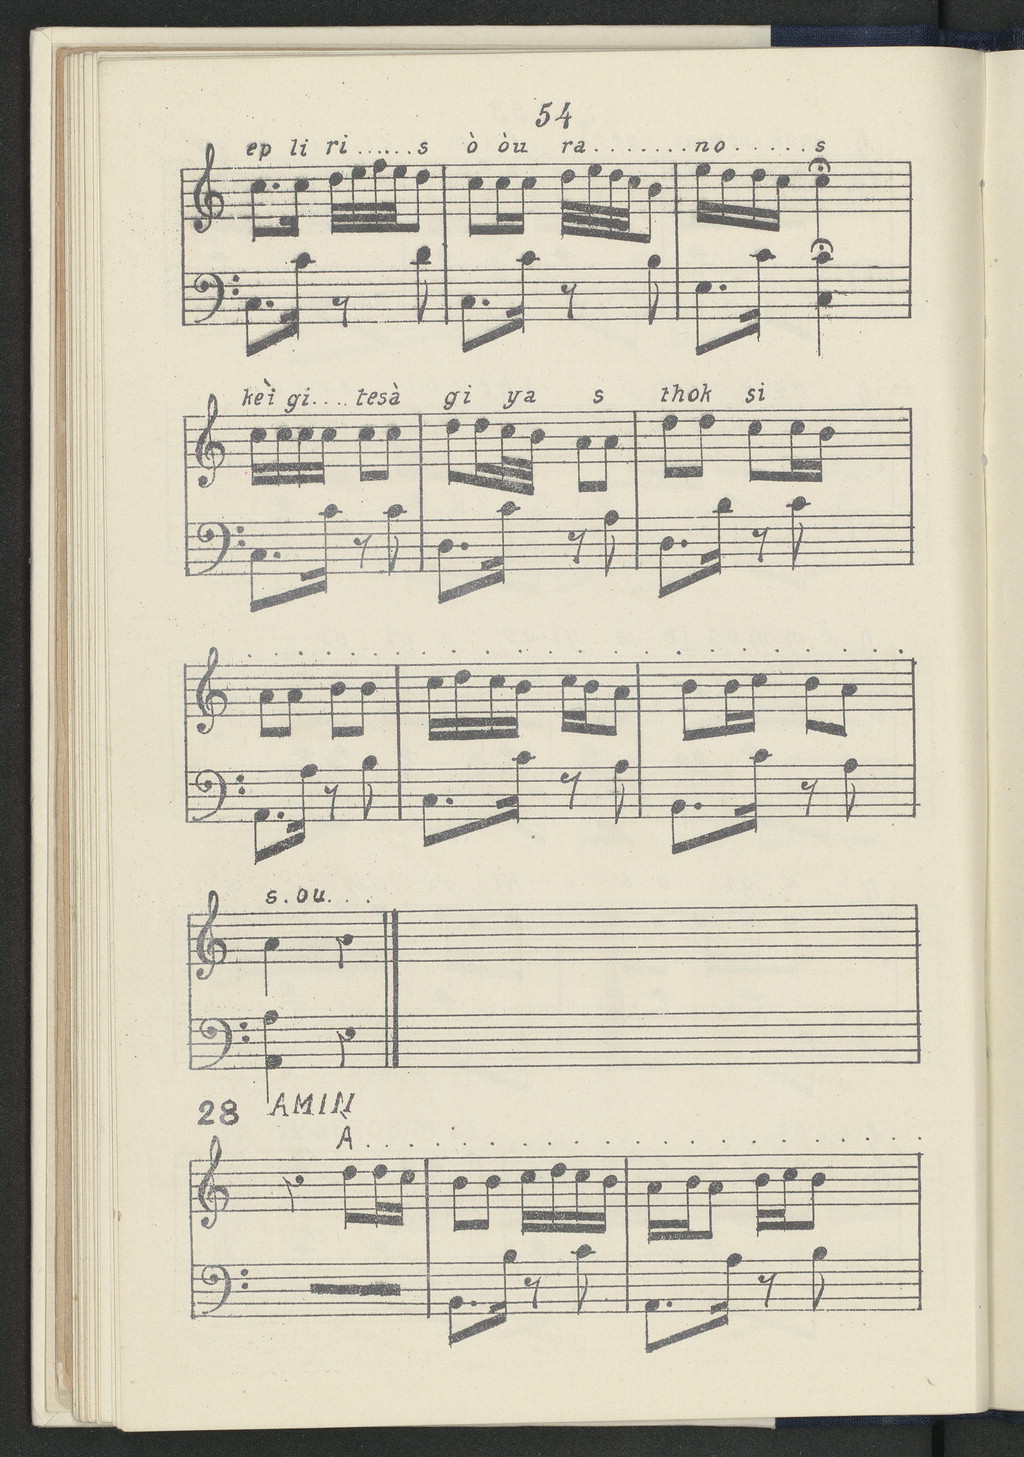 54
ep li ri ...... s ò òu ra ........ no ...... s
kèi gi .... tesà gi ya s thok si
s . ou . . .
28 AMIN
À . . . . . . . . . . . . . . . . . . . .